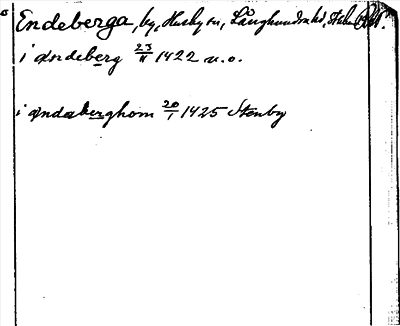 Endeberga, by, Husby sn, Långhundra hd,
i ændeberg 23/11 1422 u. o.
i ændaberghom 20/1 1425 Stenby